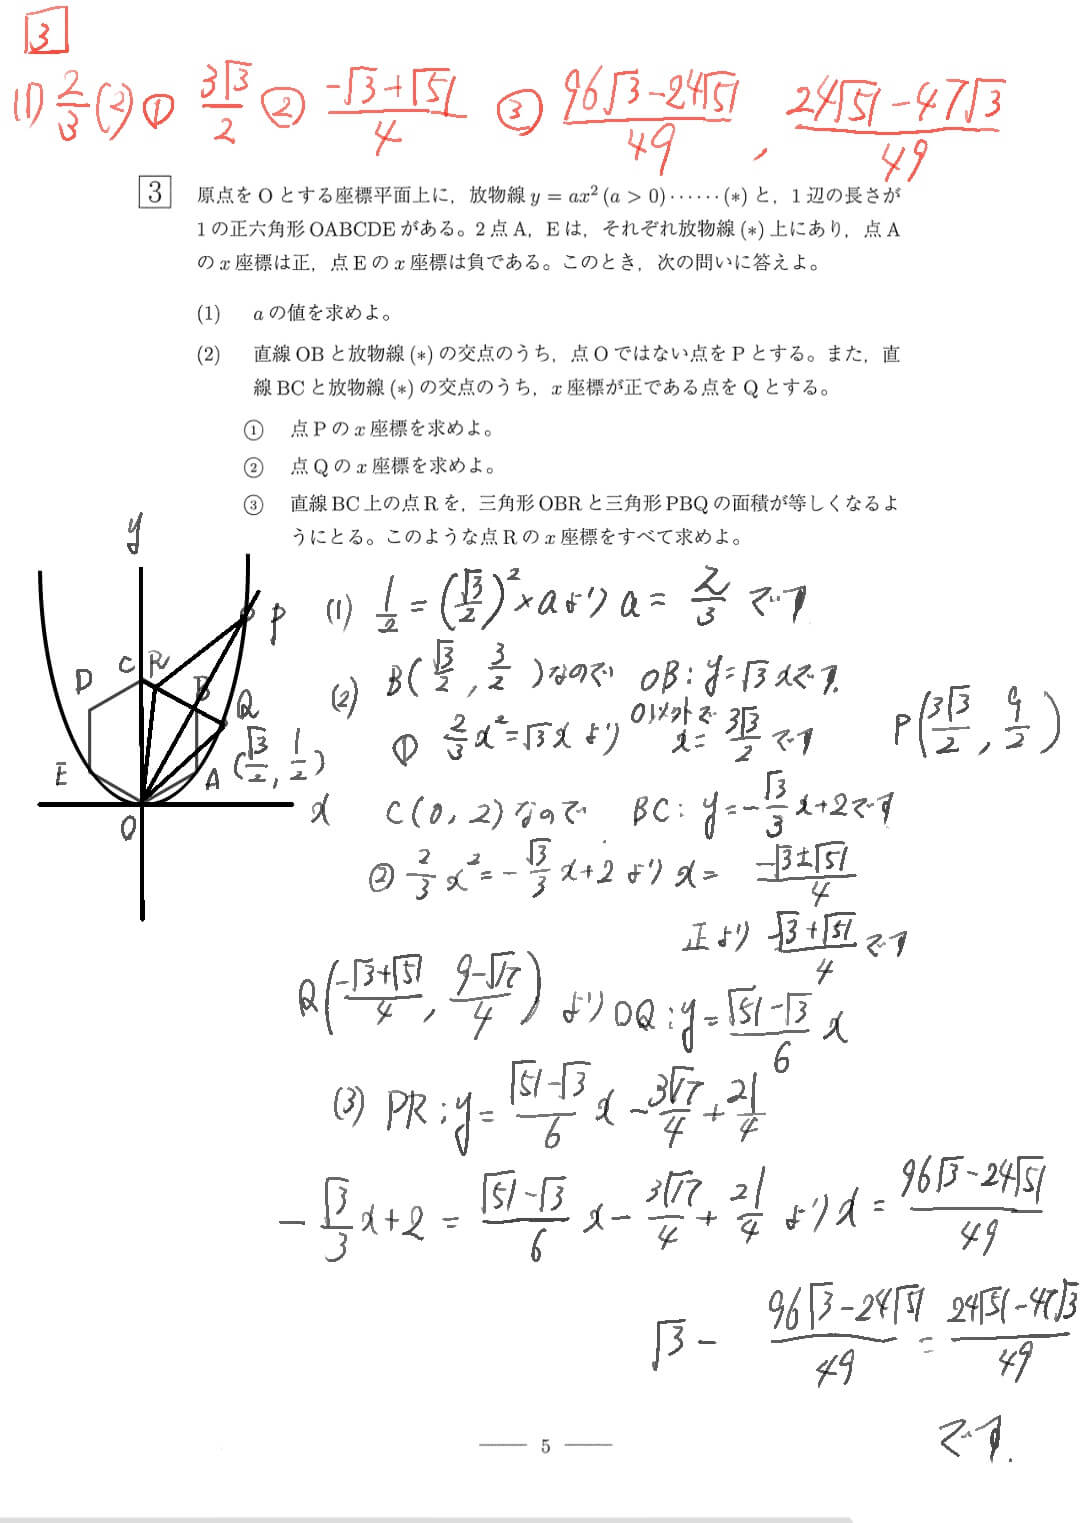 3
(1) 2/3 (2) ① 3√3/2 ② (-√3+√51)/4 ③ (96√3-24√51)/49 , (24√51-47√3)/49
3 原点を O とする座標平面上に，放物線 y = ax² (a > 0)······(∗) と，1 辺の長さが
1 の正六角形 OABCDE がある。2 点 A，E は，それぞれ放物線 (∗) 上にあり，点 A
の x 座標は正，点 E の x 座標は負である。このとき，次の問いに答えよ。
(1) a の値を求めよ。
(2) 直線 OB と放物線 (∗) の交点のうち，点 O ではない点を P とする。また，直
線 BC と放物線 (∗) の交点のうち，x 座標が正である点を Q とする。
① 点 P の x 座標を求めよ。
② 点 Q の x 座標を求めよ。
③ 直線 BC 上の点 R を，三角形 OBR と三角形 PBQ の面積が等しくなるよ
うにとる。このような点 R の x 座標をすべて求めよ。
y
P
C R
D
B
Q
(√3/2, 1/2)
E
A
x
O
(1) 1/2 = (√3/2)² × a より a = 2/3 です
(2) B(√3/2, 3/2) なので OB: y = √3x です。
① 2/3 x² = √3x より O以外で x = 3√3/2 です P(3√3/2, 9/2)
C(0, 2) なので BC: y = -√3/3 x + 2 です
② 2/3 x² = -√3/3 x + 2 より x = (-√3±√51)/4
正より (-√3+√51)/4 です
Q((-√3+√51)/4, (9-√17)/4) より OQ: y = (√51-√3)/6 x
(3) PR: y = (√51-√3)/6 x - 3√17/4 + 21/4
-√3/3 x + 2 = (√51-√3)/6 x - 3√17/4 + 21/4 より x = (96√3-24√51)/49
√3 - (96√3-24√51)/49 = (24√51-47√3)/49
です.
5